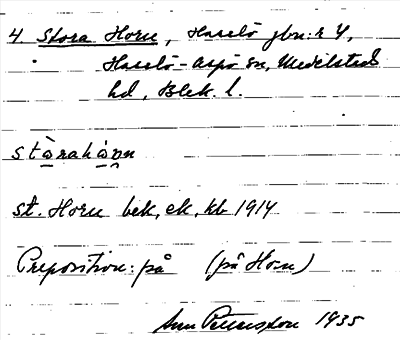 4. Stora Horn, Hasslö jbn: r 4,
Hasslö-Aspö sn, Medelstads
hd, Blek. l.
st. Horn bek, ek, kb 1914
Preposition: på (på Horn)
Pettersson 1935